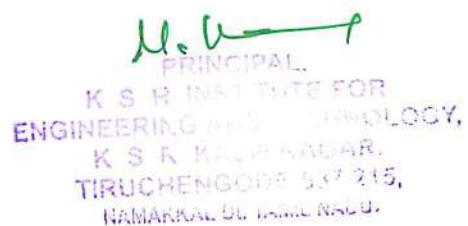 PRINCIPAL,
K S R INSTITUTE FOR
ENGINEERING AND TECHNOLOGY,
K S R KALVI NAGAR,
TIRUCHENGODE 637 215,
NAMAKKAL Dt. TAMIL NADU.